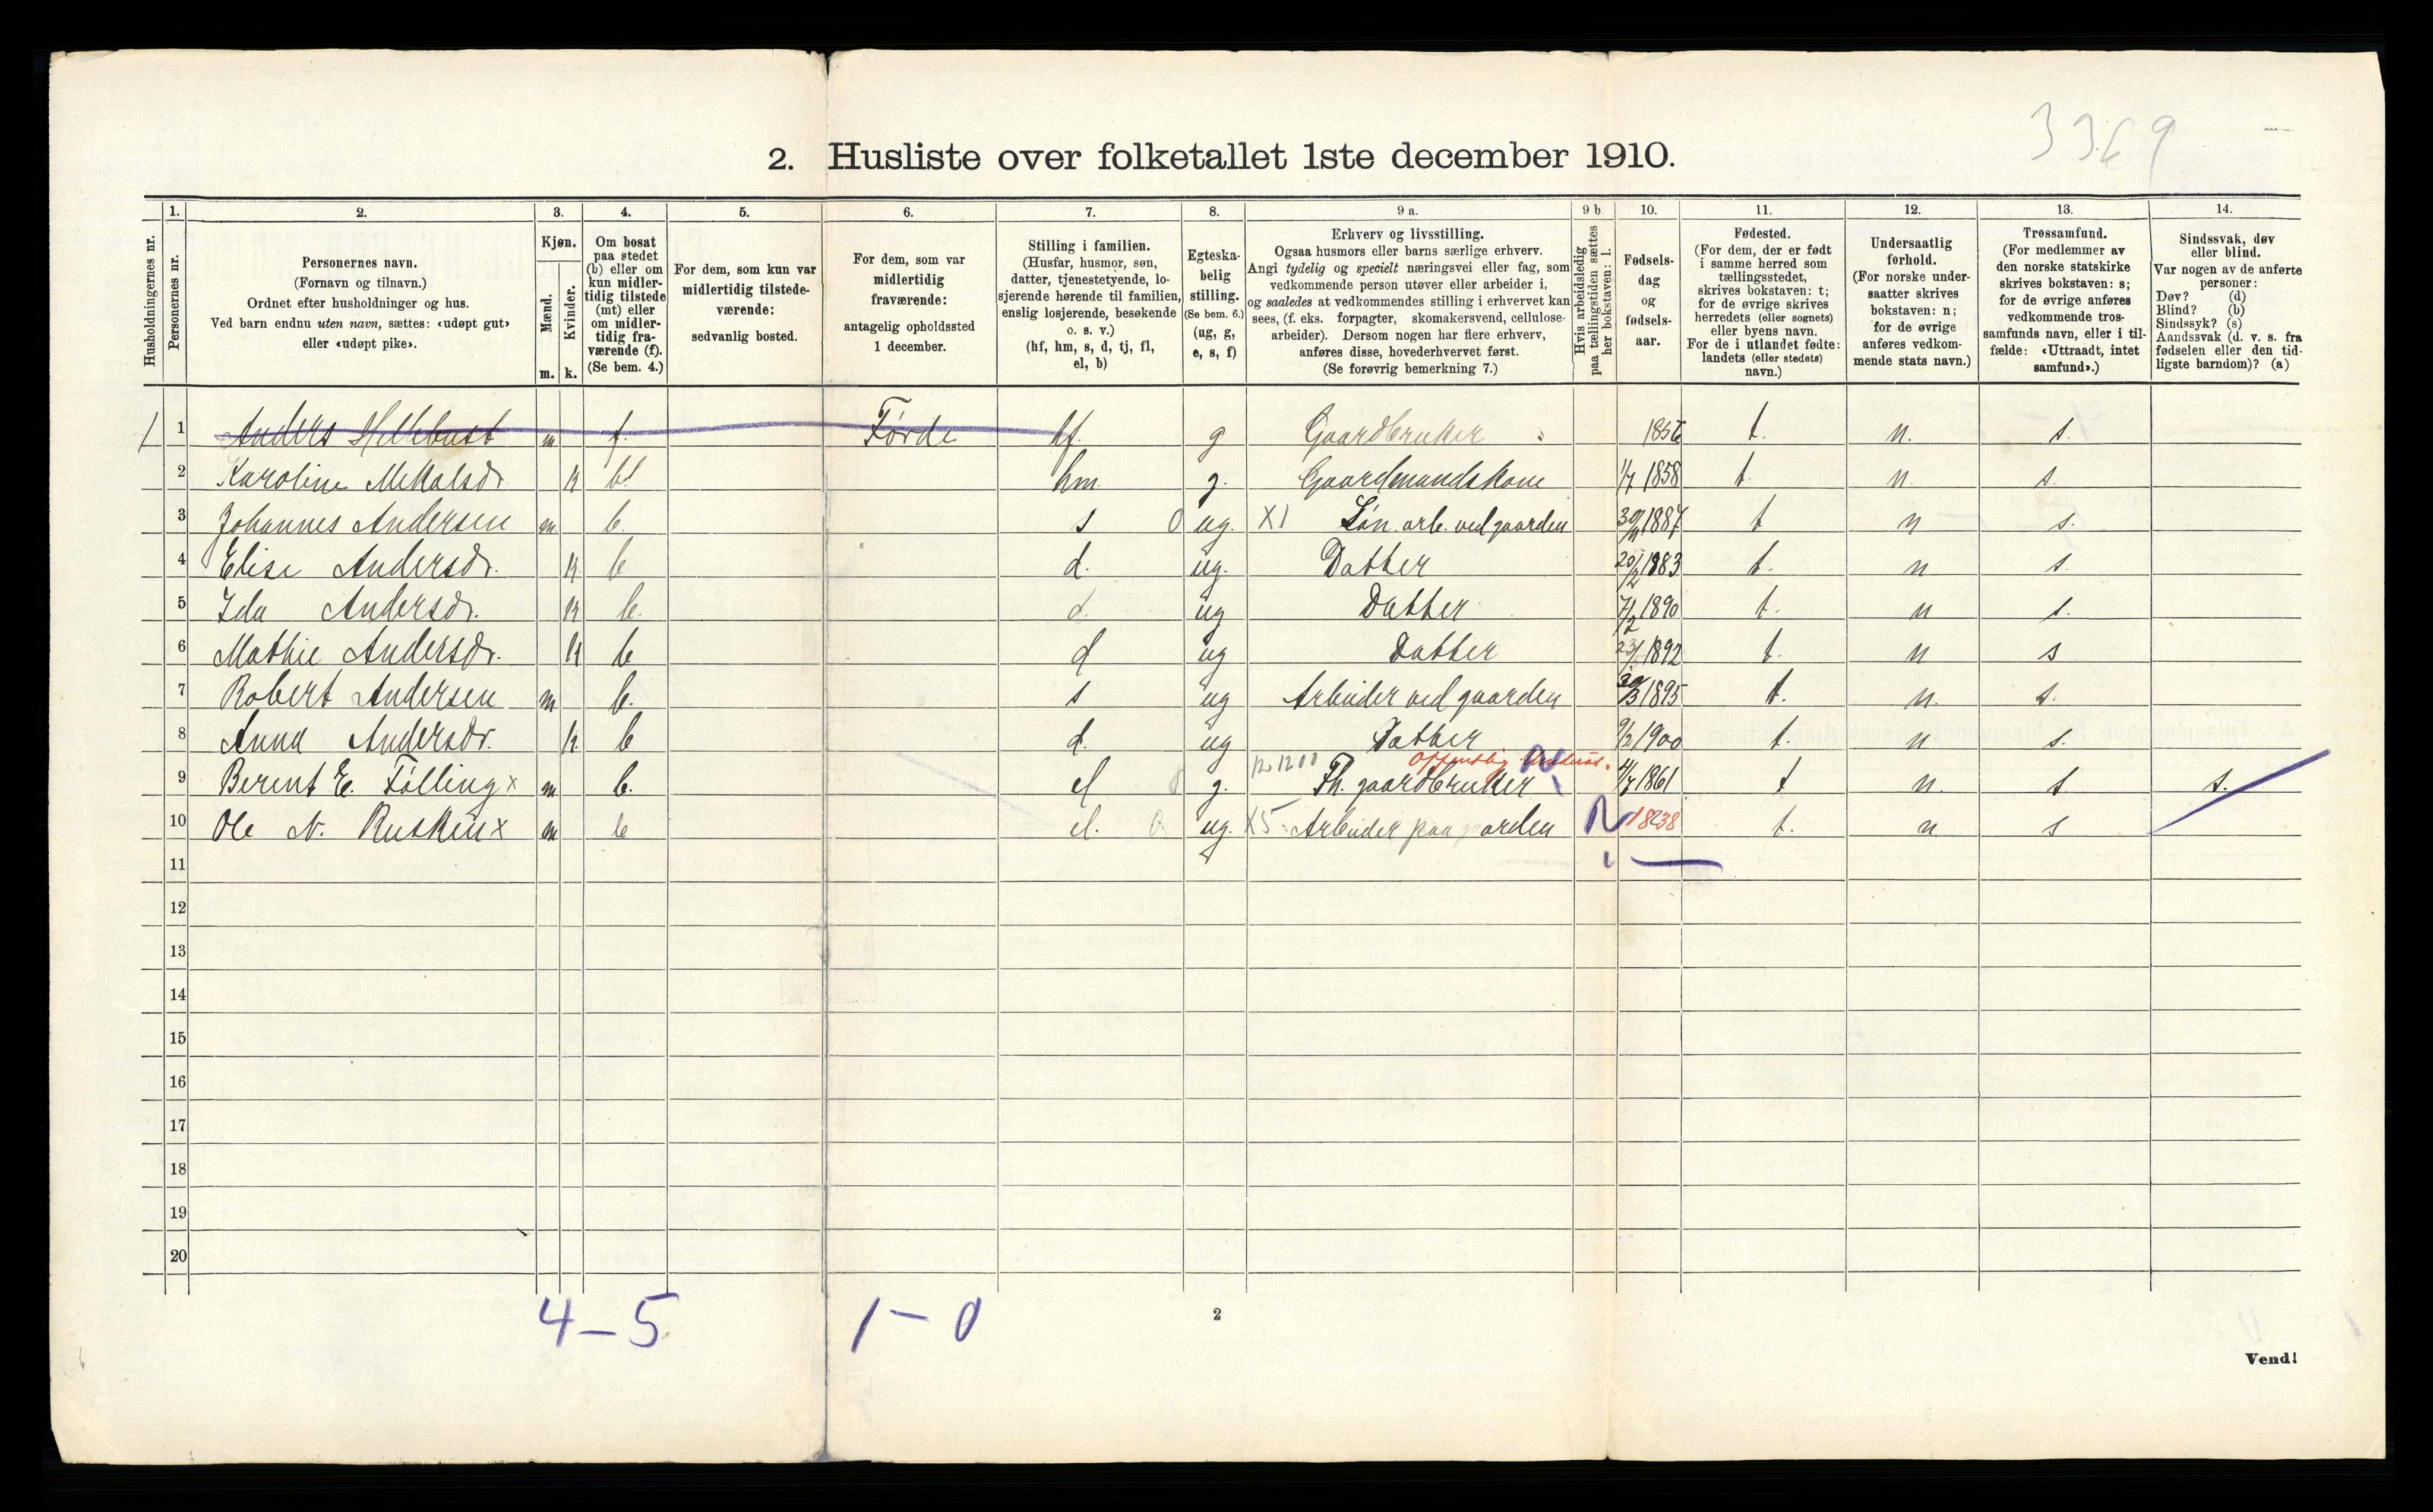 3369
2. Husliste over folketallet 1ste december 1910.
Husholdningernes nr.
1. Personernes nr.
2. Personernes navn. (Fornavn og tilnavn.) Ordnet efter husholdninger og hus. Ved barn endnu uten navn, sættes: «udøpt gut» eller «udøpt pike».
3. Kjøn. Mænd. m. Kvinder. k.
4. Om bosat paa stedet (b) eller om kun midlertidig tilstede (mt) eller om midlertidig fraværende (f). (Se bem. 4.)
5. For dem, som kun var midlertidig tilstedeværende: sedvanlig bosted.
6. For dem, som var midlertidig fraværende: antagelig opholdssted 1 december.
7. Stilling i familien. (Husfar, husmor, søn, datter, tjenestetyende, losjerende hørende til familien, enslig losjerende, besøkende o. s. v.) (hf, hm, s, d, tj, fl, el, b)
8. Egteskabelig stilling. (Se bem. 6.) (ug, g, e, s, f)
9 a. Erhverv og livsstilling. Ogsaa husmors eller barns særlige erhverv. Angi tydelig og specielt næringsvei eller fag, som vedkommende person utøver eller arbeider i, og saaledes at vedkommendes stilling i erhvervet kan sees, (f. eks. forpagter, skomakersvend, cellulosearbeider). Dersom nogen har flere erhverv, anføres disse, hovederhvervet først. (Se forøvrig bemerkning 7.)
9 b Hvis arbeidsledig paa tællingstiden sættes her bokstaven: l.
10. Fødselsdag og fødselsaar.
11. Fødested. (For dem, der er født i samme herred som tællingsstedet, skrives bokstaven: t; for de øvrige skrives herredets (eller sognets) eller byens navn. For de i utlandet fødte: landets (eller stedets) navn.)
12. Undersaatlig forhold. (For norske undersaatter skrives bokstaven: n; for de øvrige anføres vedkommende stats navn.)
13. Trossamfund. (For medlemmer av den norske statskirke skrives bokstaven: s; for de øvrige anføres vedkommende trossamfunds navn, eller i tilfælde: «Uttraadt, intet samfund».)
14. Sindssvak, døv eller blind. Var nogen av de anførte personer: Døv? (d) Blind? (b) Sindssyk? (s) Aandssvak (d. v. s. fra fødselen eller den tidligste barndom)? (a)
1 1 Anders Hellebust m f. Førde hf. g Gaardbruker 1856 t. n. s.
2 Karoline Mikalsdr. k b. hm. g. Gaardmandskone 1/7 1858 t. n. s.
3 Johannes Andersen m b. s 0 ug. X1 Løn. arb. ved gaarden 30/11 1887 t n s.
4 Elise Andersdr. k b d. ug. Datter 20/2 1883 t. n s
5 Ida Andersdr. k b. d. ug Datter 7/2 1890 t. n s.
6 Mathie Andersdr. k b d ug Datter 23/ 1892 t. n s
7 Robert Andersen m b. s ug Arbeider ved gaarden 30/3 1895 t. n. s.
8 Anna Andersdr. k. b d. ug Datter 9/2 1900 t. n s.
9 Berent E. Følling x m b. el 0 g. 12 1200 Fh. gaardbruker offentlig 4/7 1861 t n. s s.
10 Ole N. x m b el. 0 ug. X5 Arbeider paa gaarden 1838 t. n s
11
12
13
14
15
16
17
18
19
20
4 – 5 1 – 0
2
Vend!